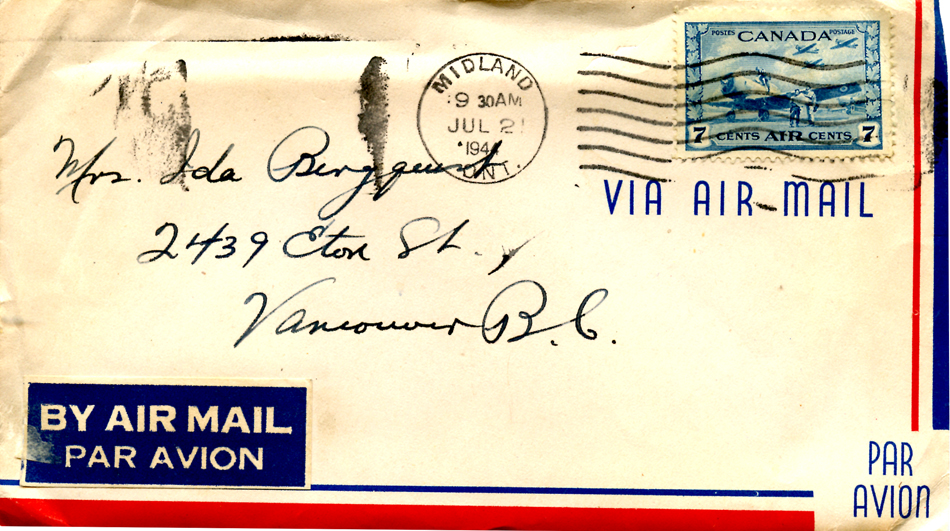 POSTES CANADA POSTAGE
7 CENTS AIR CENTS 7
MIDLAND
9 30AM
JUL 21
194
ONT.
VIA AIR MAIL
Mrs. Ida Bergquist
2439 Eton St.,
Vancouver B.C.
BY AIR MAIL
PAR AVION
PAR
AVION